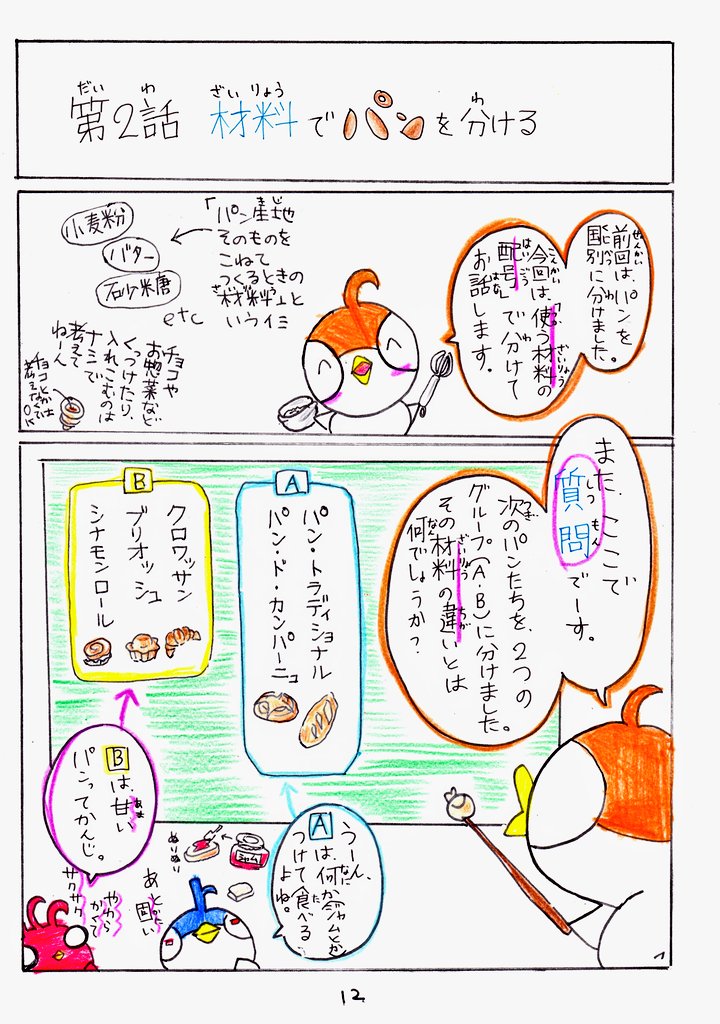 第2話 材料でパンを分ける
だい わ ざいりょう わ
前回は、パンを
国別に分けました。
今回は使う材料の
配号」で分けて
お話します。
「パン産地
そのものを
こねて
つくるときの
「材料」と
いうイミ
小麦粉
バター
石少米唐
etc
チョコや
お惣菜など
くっつけたり、
入れこむのは
ナシで
考えて
ねーん
また、ここで
質問でーす。
しつ もん
次のパンたちを、2つの
グループ(A・B)に分けました。
その材料の違いとは
何でしょうか?
A
パン・トラディショナル
パン・ド・カンパーニュ
B
クロワッサン
ブリオッシュ
シナモンロール
うーん、
Aは、何かジャムとか
つけて食べる
よね。
Bは、甘い
パンってかんじ。
ジャム
ぬりぬり
あと
固い
やわら
かくて
サクサク
12